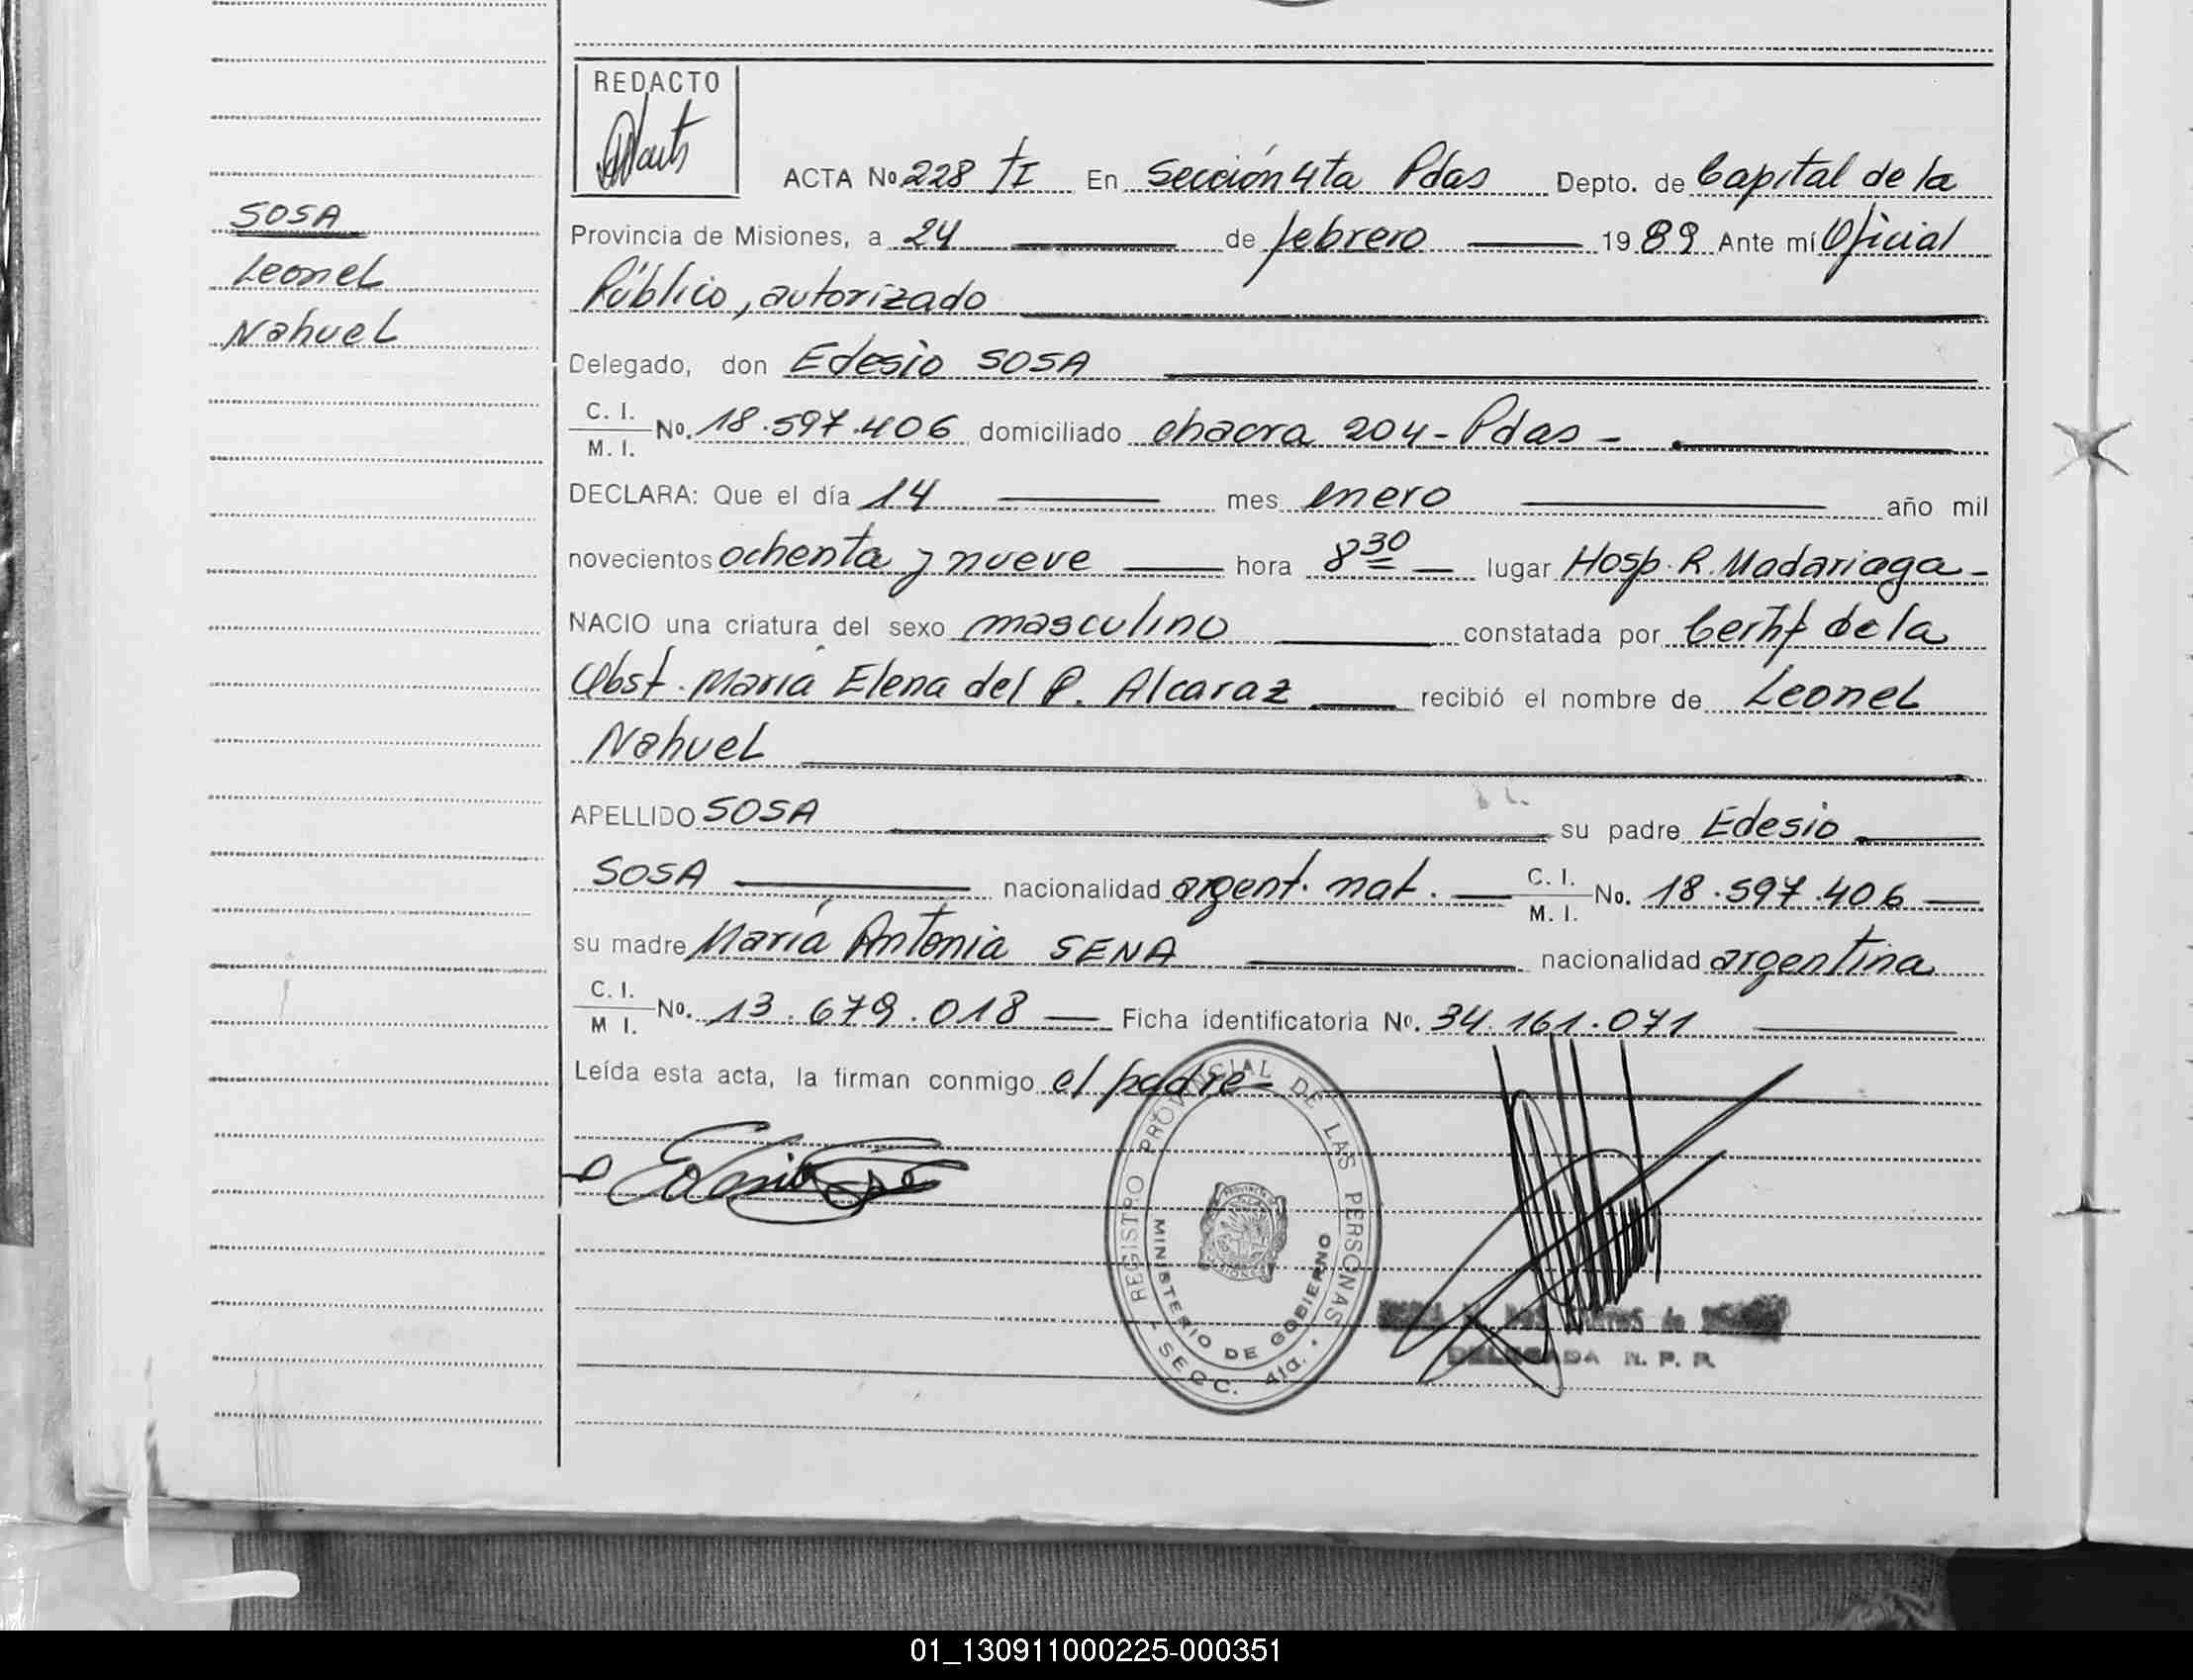 REDACTO
ACTA No 228 tI En Sección 4ta Pdas Depto. de Capital de la
SOSA
Leonel
Nahuel
Provincia de Misiones, a 24 de febrero 1989 Ante mí Oficial
Público, autorizado
Delegado, don Edesio SOSA
C. I.
M. I.
No. 18.597.406 domiciliado chacra 204 - Pdas -
DECLARA: Que el día 14 mes enero año mil
novecientos ochenta y nueve hora 8 30 lugar Hosp. R. Madariaga -
NACIO una criatura del sexo masculino constatada por Certif de la
Obst. María Elena del P. Alcaraz recibió el nombre de Leonel
Nahuel
APELLIDO SOSA su padre Edesio
SOSA nacionalidad argent. nat. C. I. M. I. No. 18.597.406
su madre María Antonia SENA nacionalidad argentina
C. I.
M I.
No. 13.679.018 Ficha identificatoria No. 34.161.071
Leída esta acta, la firman conmigo el padre
REGISTRO PROVINCIAL DE LAS PERSONAS
MINISTERIO DE GOBIERNO
SECC. 4ta.
DELEGADA R. P. P.
01_130911000225-000351